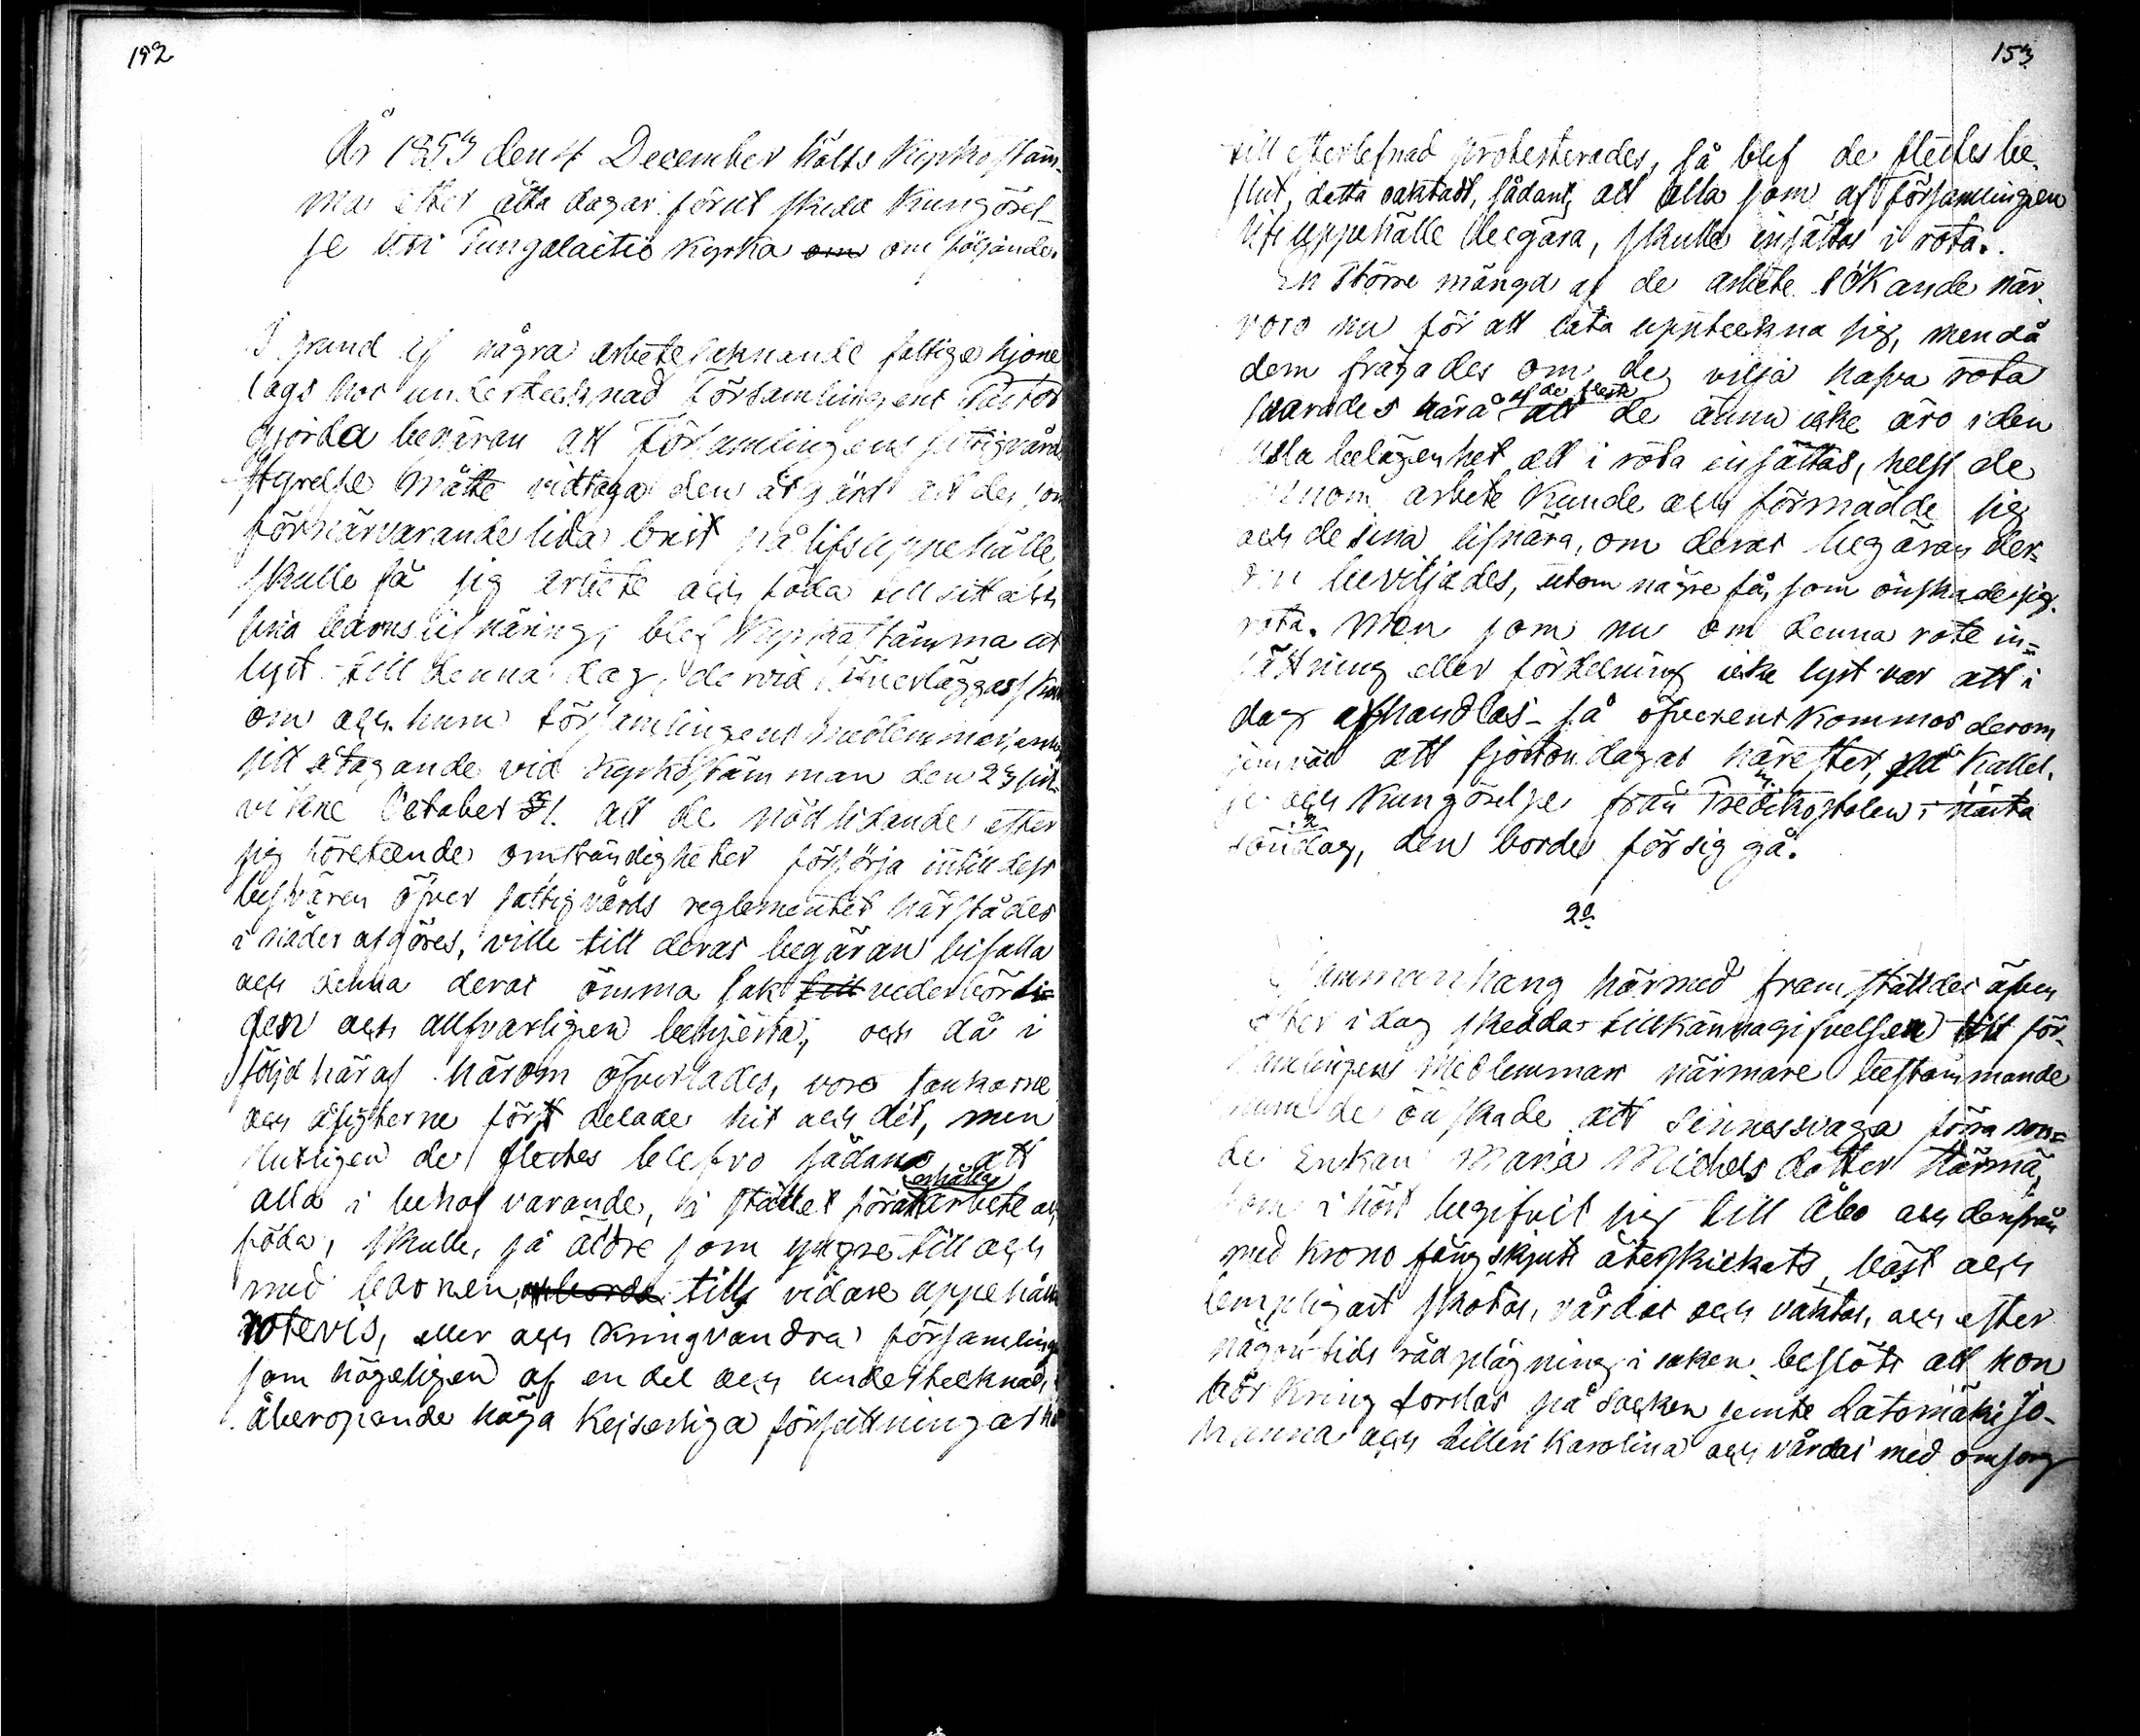 192
År 1853 den 4 December hölts Kyrkostäm-
ma efter åtta dagar förut skedd Kungörel-
se uti Tungalaitio Kyrka om om följande.
I grund af några arbete saknande fattige hjone
lags hos undertecknad Församlingens Pastor
gjorda begäran att Församlingens fattigvårds
styrelse måtte vidtaga den åtgärd att de, som
förnärvarande lida brist på lifsuppehälle,
skulle få sig arbete och föda till sitt och
sina barns lifnäring, blef Kyrkostämma ut
lyst till denna dag, dervid öfverläggas skulle
om och huru Församlingens medlemmar, enligt
sitt åtagande vid Kyrkostämman den 23 sist-
vikne October att de nödlidande efter
sig företeende omständigheter försörja intill dess
besvären öfver fattigvårds reglementet härstädes
i nåder afgöres, ville till deras begäran bifalla
och denna deras ömma sak till vederbörli-
gen och allvarligen behjerta; och då i
följd häraf härom öfverlades, voro tankarne
och åsigterne först delade hit och dit, men
slutligen de flestes blefvo sådana att
alla i behof varande, i stället för att erhålla arbete och
föda, skulle, så äldre som yngre till och
med barnen, tills vidare uppehålla
rotevis, eller och kringvandra församlingen
som högeligen af en del och undertecknad,
åberopande höga Kejserliga författningar
153
till efterlefnad protesterades, så blef de flestes be-
slut, detta oaktadt, sådant, att alla som af församlingen
lifsuppehälle begära, skulle insättas i rota.
En större mängd af de arbete sökande när-
voro nu för att låta uppteckna sig, men då
dem frågades om de vilja hafva rota
svarades härå af de fleste att de ännu icke äro i den
usla belägenhet att i rota insättas, helst de
genom arbete kunde och förmådde sig
och de sina lifnära, om deras begäran der-
om beviljades, utom någre få, som önskade sig
rota. Men som nu om denna rote in-
sättning eller fördelning icke lyst var att i
dag afhandlas, så öfverenskommos derom
jemväl att fjorton dagar härefter, på Kallel-
se och Kungörelse från Predikostolen i nästa
söndag, den borde för sig gå.
2o
I sammanhang härmed framställdes äfven
efter i dag skedda tillkännagifvelsen till för-
samlingens medlemmar närmare bestämmande
huru de önskade att sinnessvaga förra
Enkan Maria Michelsdotter Härmä,
som i höst begifvit sig till Åbo och derifrån
med krono fångskjuts återskickats, bäst och
lämpligast skötas, vårdas och vaktas, och efter
någon tids rådplägning i saken beslöts att hon
bör kring forslas på socken jemte Latomäki Jo-
hanna och Lilleri Karolina och vårdas med omsorg